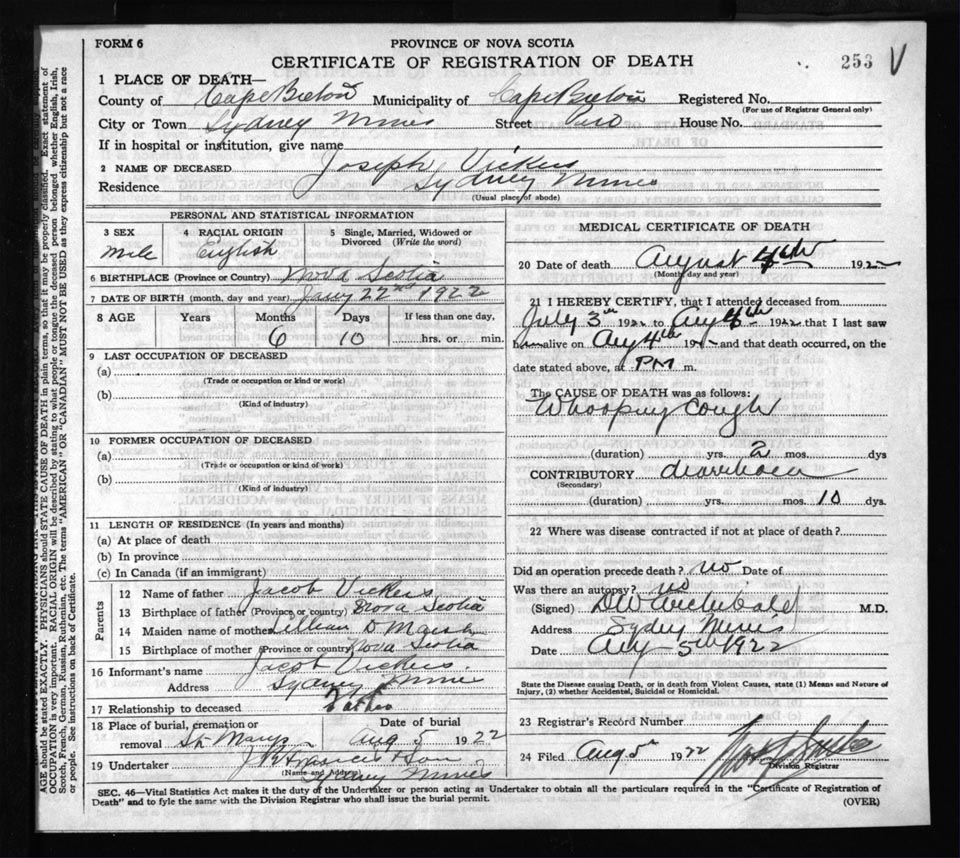 FORM 6
PROVINCE OF NOVA SCOTIA
CERTIFICATE OF REGISTRATION OF DEATH
253 V
1 PLACE OF DEATH—
County of Cape Breton Municipality of Cape Breton Registered No.
(For use of Registrar General only)
City or Town Sydney Mines Street House No.
If in hospital or institution, give name
2 NAME OF DECEASED Joseph Vickers
Residence Sydney Mines
(Usual place of abode)
PERSONAL AND STATISTICAL INFORMATION
3 SEX 4 RACIAL ORIGIN 5 Single, Married, Widowed or Divorced (Write the word)
Male English
6 BIRTHPLACE (Province or Country) Nova Scotia
7 DATE OF BIRTH (month, day and year) Jany 22nd 1922
8 AGE Years Months Days If less than one day,
6 10 hrs. or min.
9 LAST OCCUPATION OF DECEASED
(a)
(Trade or occupation or kind or work)
(b)
(Kind of industry)
10 FORMER OCCUPATION OF DECEASED
(a)
(Trade or occupation or kind of work)
(b)
(Kind of industry)
11 LENGTH OF RESIDENCE (In years and months)
(a) At place of death
(b) In province
(c) In Canada (if an immigrant)
Parents
12 Name of father Jacob Vickers
13 Birthplace of father (Province or country) Nova Scotia
14 Maiden name of mother Lillian D Marsh
15 Birthplace of mother (Province or country) Nova Scotia
16 Informant's name Jacob Vickers
Address Sydney Mines
17 Relationship to deceased Father
18 Place of burial, cremation or Date of burial
removal St Marys Aug 5 1922
19 Undertaker
(Name and Address) Sydney Mines
MEDICAL CERTIFICATE OF DEATH
20 Date of death August 4th 1922
(Month, day and year)
21 I HEREBY CERTIFY, that I attended deceased from
July 3th 1922 to Aug 4th 1922 that I last saw
him alive on Aug 4th 192 and that death occurred, on the
date stated above, at PM m.
The CAUSE OF DEATH was as follows:
Whooping Cough
(duration) yrs. 2 mos. dys
CONTRIBUTORY diarrhoea
(Secondary)
(duration) yrs. mos. 10 dys.
22 Where was disease contracted if not at place of death?
Did an operation precede death? no Date of
Was there an autopsy? no
(Signed) DW Archibald M.D.
Address Sydney Mines
Date Aug 5th 1922
State the Disease causing Death, or in death from Violent Causes, state (1) Means and Nature of
Injury, (2) whether Accidental, Suicidal or Homicidal.
23 Registrar's Record Number
24 Filed Aug 5th 1922
Division Registrar
SEC. 46—Vital Statistics Act makes it the duty of the Undertaker or person acting as Undertaker to obtain all the particulars required in the "Certificate of Registration of
Death" and to fyle the same with the Division Registrar who shall issue the burial permit.
(OVER)
AGE should be stated EXACTLY. PHYSICIANS should STATE CAUSE OF DEATH in plain terms, so that it may be properly classified. Exact statement of
OCCUPATION is very important. RACIAL ORIGIN will be described by stating to what people or tongue the deceased person belonged whether English, Irish,
Scotch, French, German, Russian, Ruthenian, etc. The terms "AMERICAN" OR "CANADIAN" MUST NOT BE USED as they express citizenship but not a race
or people. See instructions on back of Certificate.